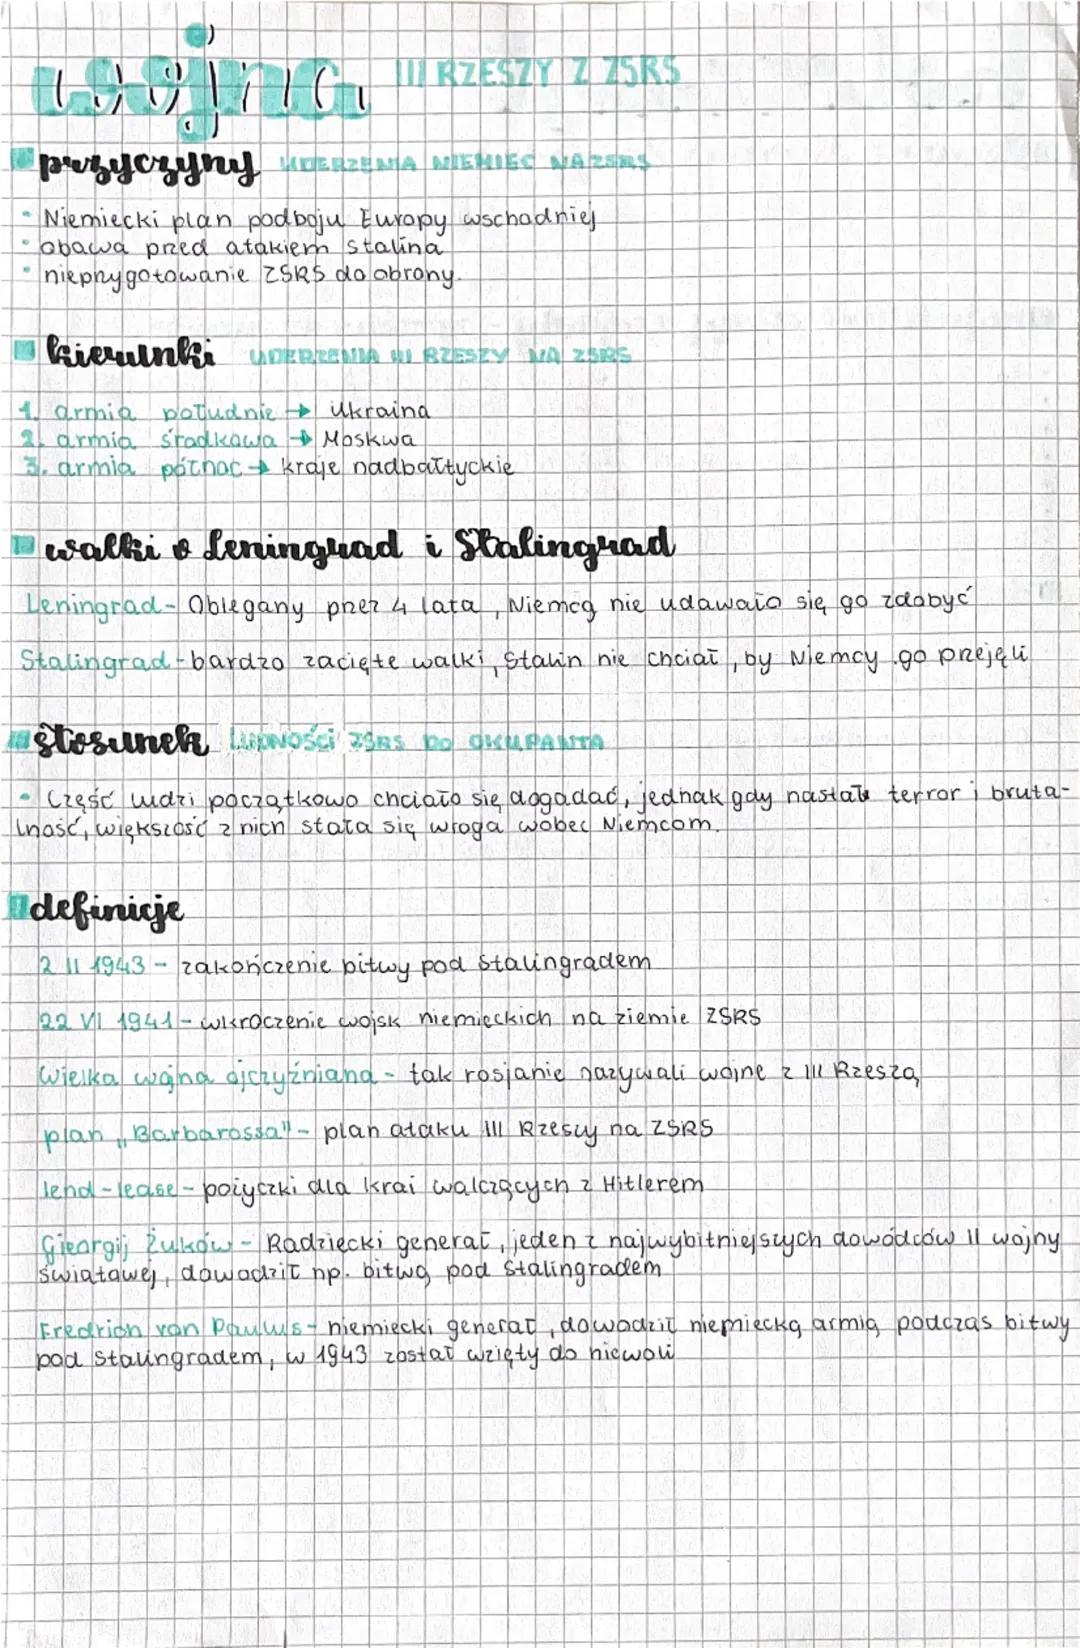 wojna III RZESZY Z ZSRS
przyczyny UDERZENIA NIEMIEC NA ZSRS
• Niemiecki plan podboju Europy wschodniej
• obawa przed atakiem Stalina
• nieprzygotowanie ZSRS do obrony.
kierunki UDERZENIA III RZESZY NA ZSRS
1. armia południe → Ukraina
2. armia środkowa → Moskwa
3. armia północ → kraje nadbałtyckie
walki o Leningrad i Stalingrad
Leningrad - Oblegany przez 4 lata, Niemcą nie udawało się go zdobyć
Stalingrad - bardzo zacięte walki, Stalin nie chciał, by Niemcy go przejęli
stosunek LUDNOŚCI ZSRS DO OKUPANTA
• Część ludzi początkowo chciało się dogadać, jednak gdy nastał terror i bruta-
lność, większość z nich stała się wroga wobec Niemcom.
definicje
2 II 1943 - zakończenie bitwy pod Stalingradem
22 VI 1941 - wkroczenie wojsk niemieckich na ziemie ZSRS
Wielka wojna ojczyźniana - tak rosjanie nazywali wojne z III Rzeszą
plan „Barbarossa" - plan ataku III Rzeszy na ZSRS
lend-lease - pożyczki dla krai walczących z Hitlerem
Gieorgij Żuków - Radziecki generał, jeden z najwybitniejszych dowódców II wojny
światowej, dowodził np. bitwą pod Stalingradem
Fredrich von Paulus - niemiecki generał, dowodził niemiecką armią podczas bitwy
pod Stalingradem, w 1943 został wzięty do niewoli